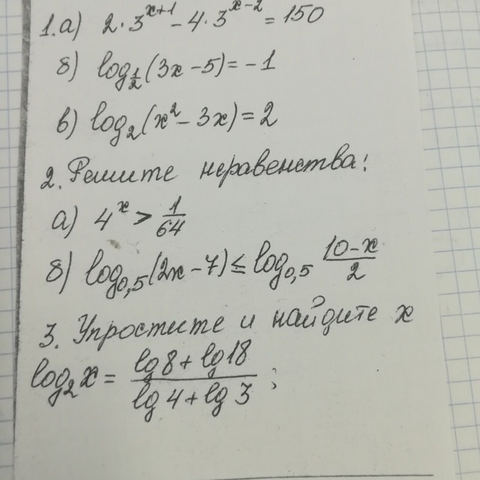 1. а) 2·3^(x+1) − 4·3^(x−2) = 150
б) log_(1/2)(3x−5) = −1
в) log_2(x² − 3x) = 2
2. Решите неравенства:
а) 4^x > 1/64
б) log_(0,5)(2x−7) ≤ log_(0,5) (10−x)/2
3. Упростите и найдите x
log_2 x = (lg 8 + lg 18)/(lg 4 + lg 3);